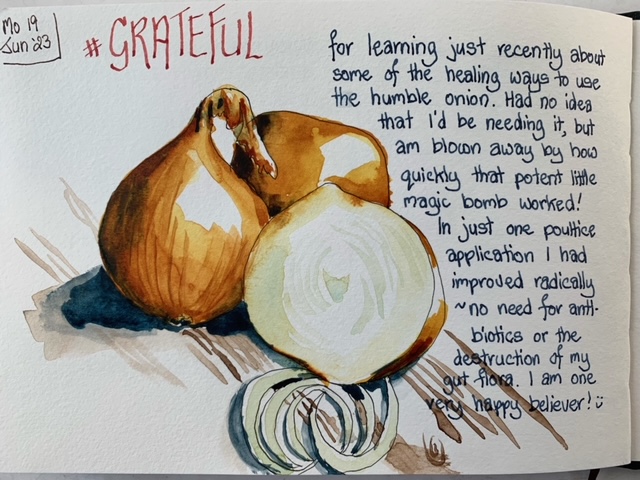 Mo 19
Jun '23
#GRATEFUL
for learning just recently about
some of the healing ways to use
the humble onion. Had no idea
that I'd be needing it, but
am blown away by how
quickly that potent little
magic bomb worked!
In just one poultice
application I had
improved radically
~no need for anti-
biotics or the
destruction of my
gut flora. I am one
very happy believer! ü